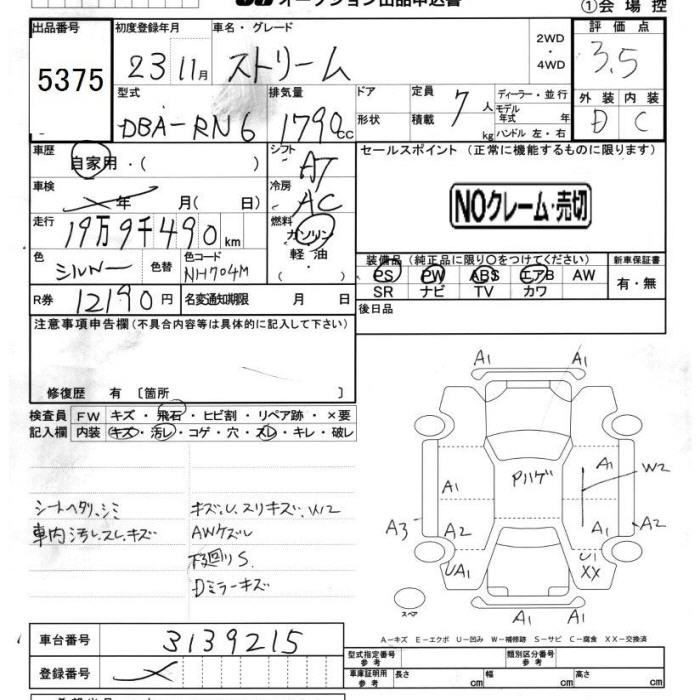 オークション出品申込書
①会場控
出品番号
5375
初度登録年月
23 11月
車名・グレード
ストリーム
2WD
・
4WD
評価点
3.5
型式
DBA-RN6
排気量
1790cc
ドア
形状
定員
積載
7人
kg
ディーラー・並行
モデル
年式 年
ハンドル 左・右
外装
D
内装
C
車歴
自家用・( )
シフト
AT
セールスポイント (正常に機能するものに限ります)
車検
年 月( 日)
冷房
AC
NOクレーム・売切
走行
19万9千490km
燃料
ガソリン
軽油
・
( )
色
シルバー
色替
色コード
NH704M
装備品(純正品に限り○をつけてください)
PS PW ABS エアB AW
SR ナビ TV カワ
新車保証書
有・無
R券
12190円
名変通知期限 月 日
後日品
注意事項申告欄(不具合内容等は具体的に記入して下さい)
修復歴 有 〔箇所 〕
検査員
記入欄
FW キズ・飛石・ヒビ割・リペア跡・×要
内装 キズ・汚レ・コゲ・穴・スレ・キレ・破レ
シートヘタリ、シミ
車内汚レ、スレ、キズ
キズ、U、スリキズ、W2
AWケズレ
下廻りS
Dミラーキズ
A1
A1
A1
A1
W2
Pハゲ
A1
A3
A2
A1
A2
UA1
U1
XX
A1
A1
スペア
A-キズ E-エクボ U-凹み W-補修跡 S-サビ C-腐食 XX-交換済
車台番号
3139215
登録番号
型式指定番号
参考
類別区分番号
参考
車庫証明用
参考
長さ cm
幅 cm
高さ cm